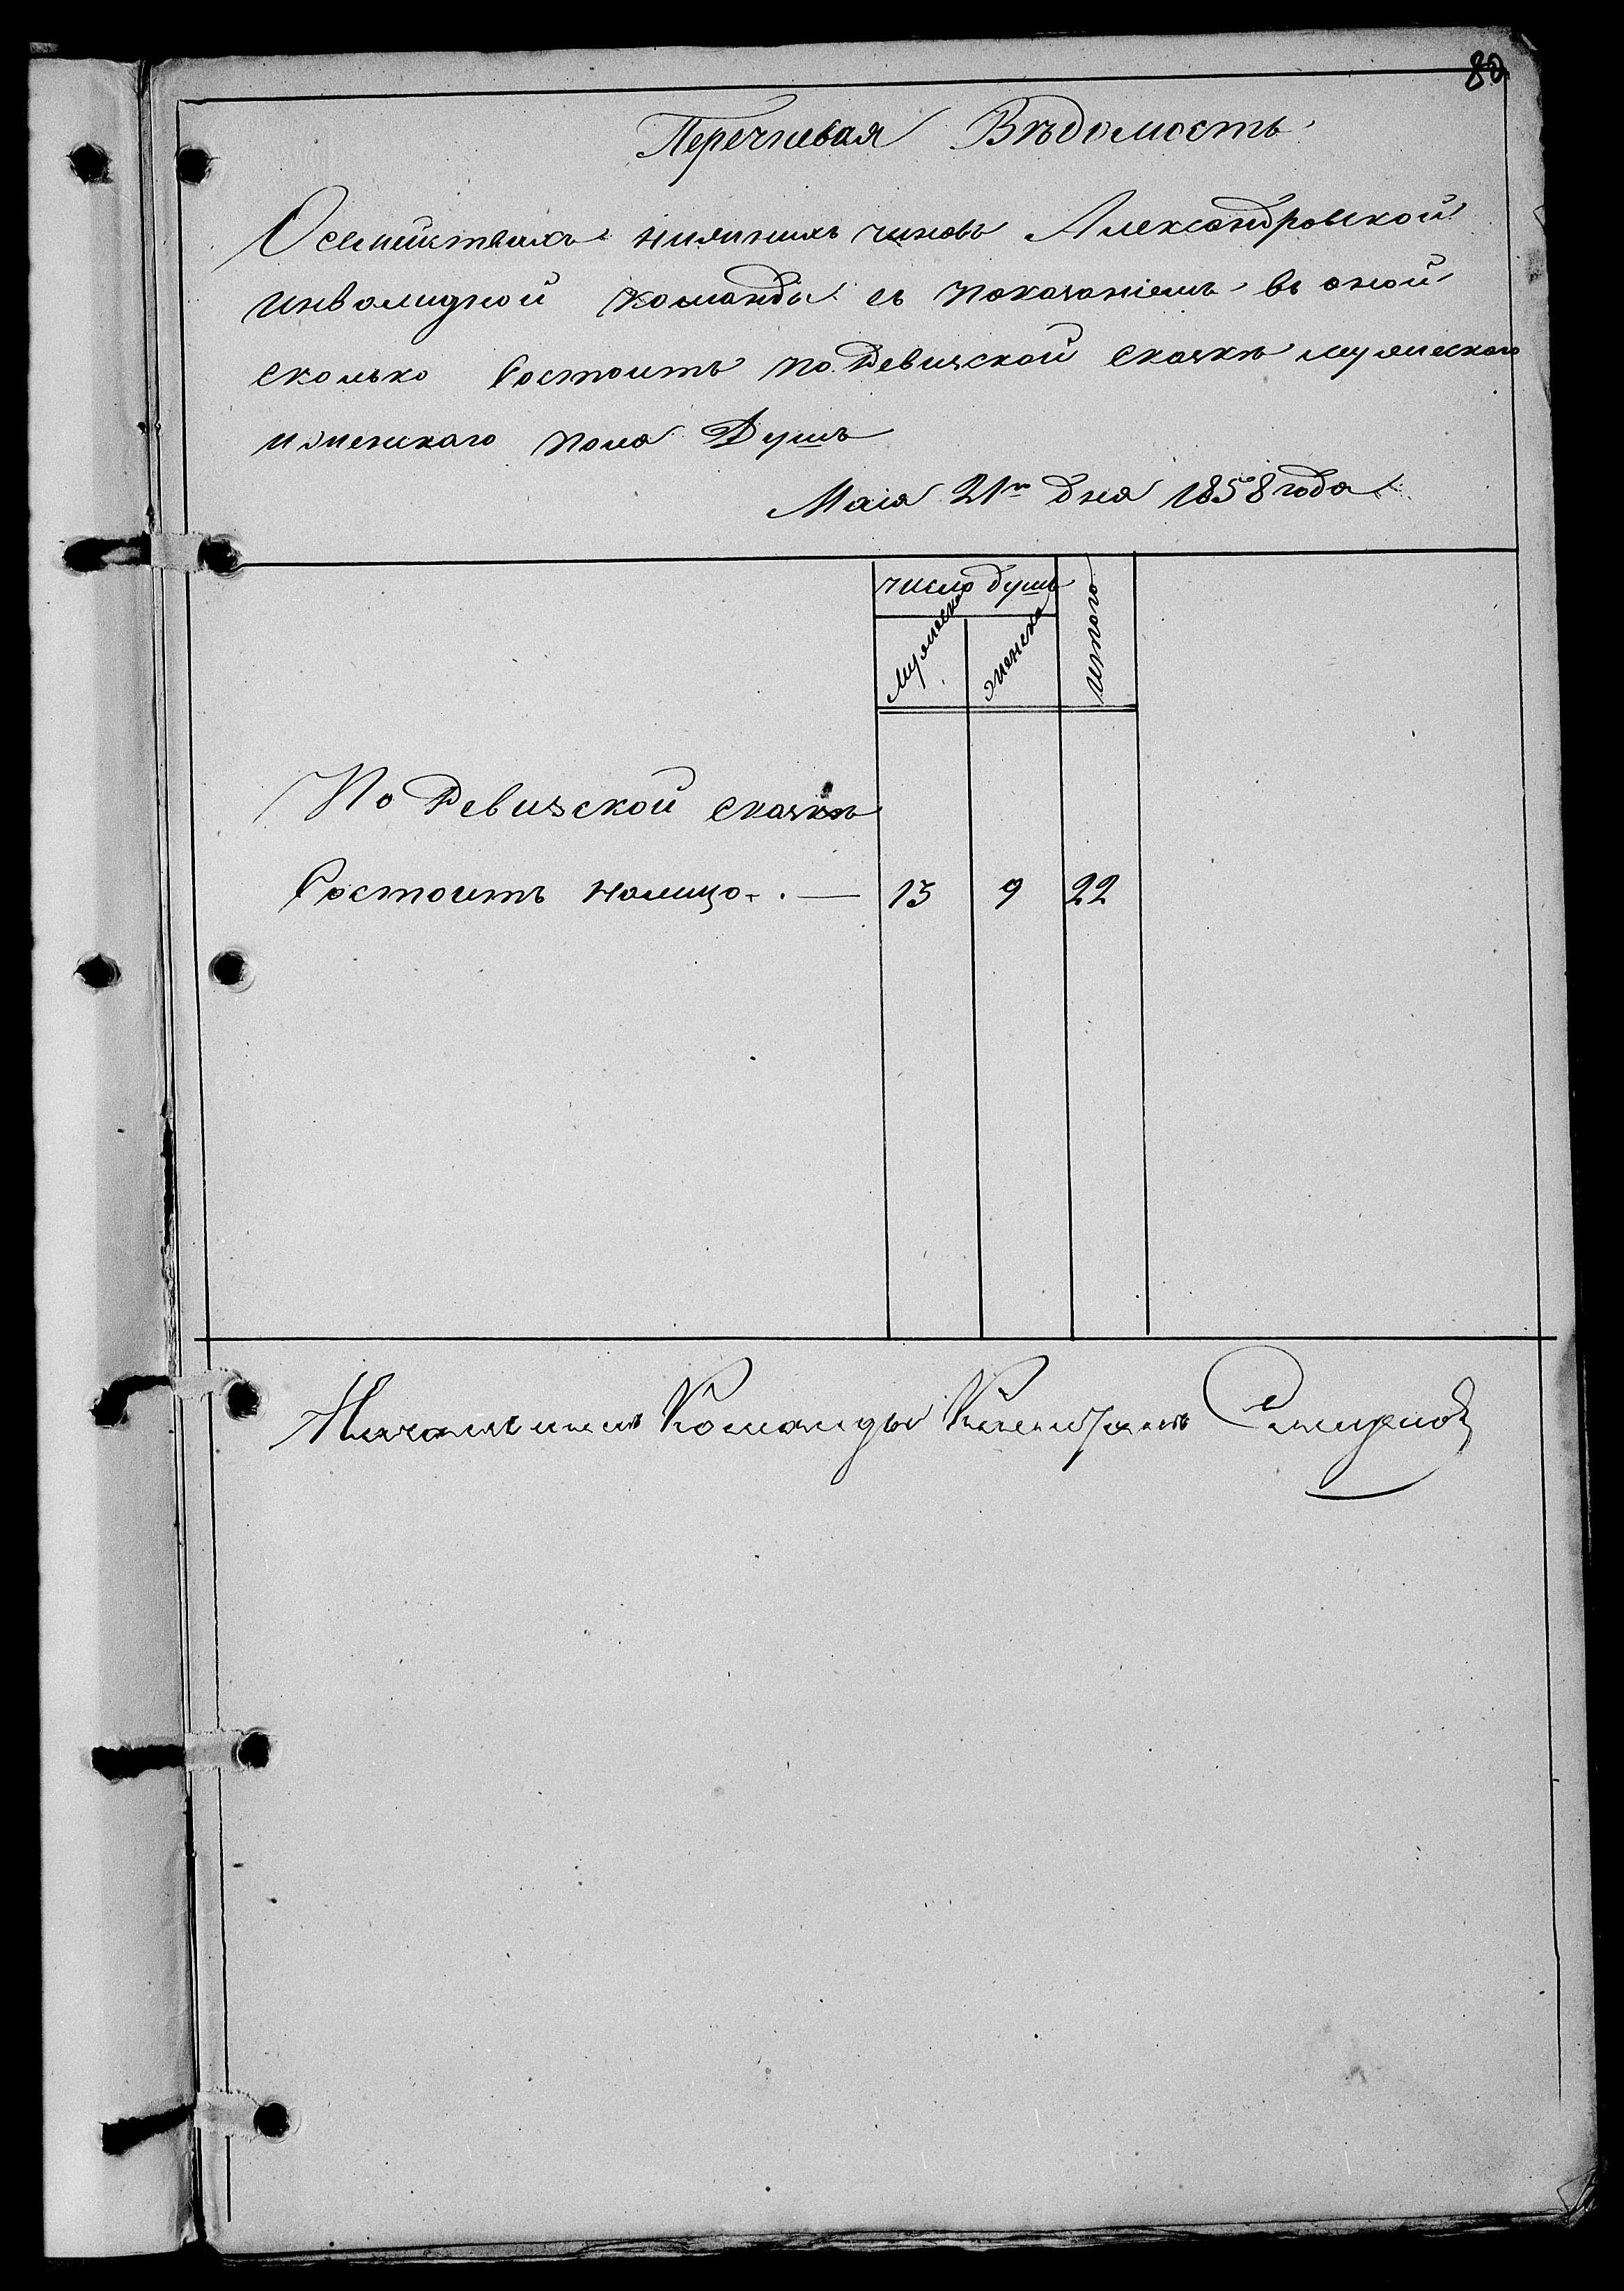 80
Перечневая Вѣдомость
О семействахъ нижнихъ чиновъ Александровской
инвалидной команды съ показаніемъ въ оной
сколько Состоитъ по Ревизской сказкѣ мужескаго
и женскаго пола Душъ
Маія 21го дня 1858 года
число душъ
мужеска
женска
итого
По Ревизской сказкѣ
Состоитъ налицо . — 13 9 22
Начальникъ Команды Капитанъ Смирнов